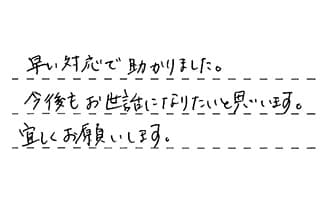 早い対応で助かりました。
今後もお世話になりたいと思います。
宜しくお願いします。